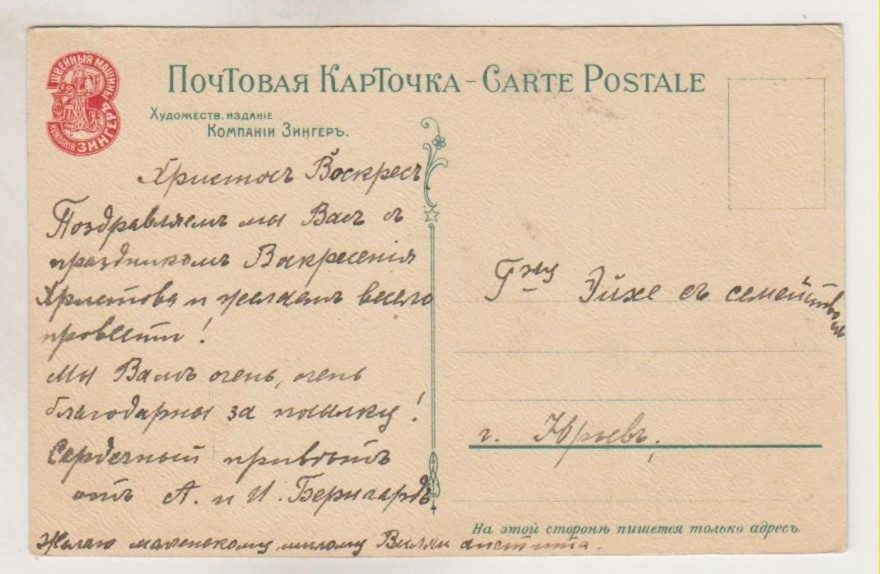 ШВЕЙНЫЯ МАШИНЫ
КОМПАНІИ ЗИНГЕРЪ
ПОЧТОВАЯ КАРТОЧКА – CARTE POSTALE
ХУДОЖЕСТВ. ИЗДАНІЕ
КОМПАНІИ ЗИНГЕРЪ.
Христосъ Воскресъ
Поздравляемъ мы Васъ съ
праздникомъ Воскресенія
Христова и желаемъ весело
провести!
Мы Вамъ очень, очень
благодарны за посылку!
Сердечный привѣтъ
отъ А. и И. Бернгардъ
Желаю маленькому, милому Вилли аппетита.
Г-ну Эйхе съ семействомъ
г. Юрьевъ.
На этой сторонѣ пишется только адресъ.